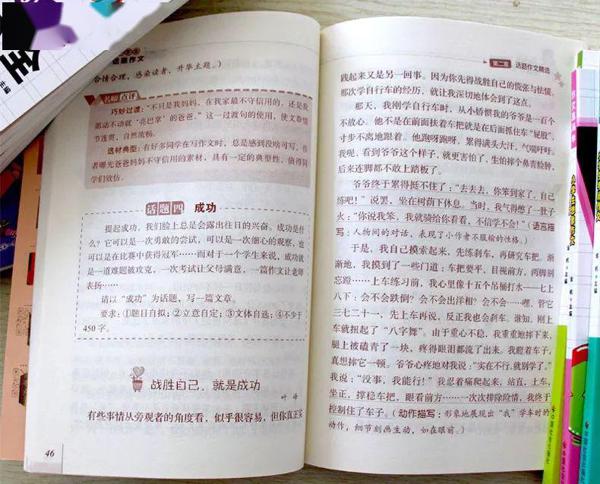 话题作文
合情合理,感染读者,升华主题。)
名师点评
巧妙过渡:“不只是我妈妈,在我家最不守信用的,还是我
那动不动就‘亮巴掌’的爸爸。”这一过渡句的使用,使文章情
节连贯,自然流畅。
选材典型:有好多同学在写作文时,总是感到没啥可写,作
者曝光爸爸妈妈不守信用的素材,具有一定的典型性,值得同
学们效仿。
话题四 成功
提起成功,我们脸上总是会露出往日的兴奋。成功是什
么?它可以是一次勇敢的尝试,可以是一次细心的观察,也
可以是在比赛中获得冠军……而对于一个学生来说,成功就
是一道难题被攻克,一次考试让父母满意,一篇作文让老师
表扬……
请以“成功”为话题,写一篇文章。
要求:①题目自拟;②立意自定;③文体自选;④不少于
450字。
战胜自己,就是成功
有些事情从旁观者的角度看,似乎很容易,但你真正实
46
第二章 话题作文精选
践起来又是另一回事。因为你先得战胜自己的慌张与怯懦,
那次学自行车的经历,就让我深切地体会到了这点。
那天,我刚学自行车时,从小娇惯我的爷爷是一百个
不放心。他不是在前面扶着车把就是在后面抓住车“屁股”,
寸步不离地跟着。他跑呀跑呀,累得满头大汗,气喘吁吁。
我呢,看到爷爷这个样子,就更害怕了,生怕摔个鼻青脸肿,
后来连脚都不敢上踏板了。
爷爷终于累得挺不住了:“去去去,你笨到家了,自己
练吧!”说罢,坐在树荫下休息。当时,我气得憋了一肚子
火:“你说我笨,我就骑给你看看,不信学不会!”(语言描
写:人物间的对话,表现了小作者不服输的性格。)
于是,我自己摸索起来,先练刹车,再研究车把。渐
渐地,我摸到了一些门道:车把要平,目视前方,两脚别
忘蹬……上车练习前,我心里像十五个吊桶打水——七上
八下:会不会跌倒?会不会出洋相?会不会……哩,管它
三七二十一,先上车再说,反正我也会刹车。谁知,刚上
车就扭起了“八字舞”。由于重心不稳,我重重地摔下来,
腿上被磕青了一块,疼得眼泪都流了出来。我瞪着车子,
真想摔它一顿。爷爷心疼地对我说:“实在不行,就别学了。”
我说:“没事,我能行!”我忍着痛爬起来,站直,上车,
坐正,撑稳车把,眼看前方……一次次排除险情,我终于
控制住了车子。(动作描写:形象地展现出“我”学车时的
动作,细节刻画生动,如在眼前。)